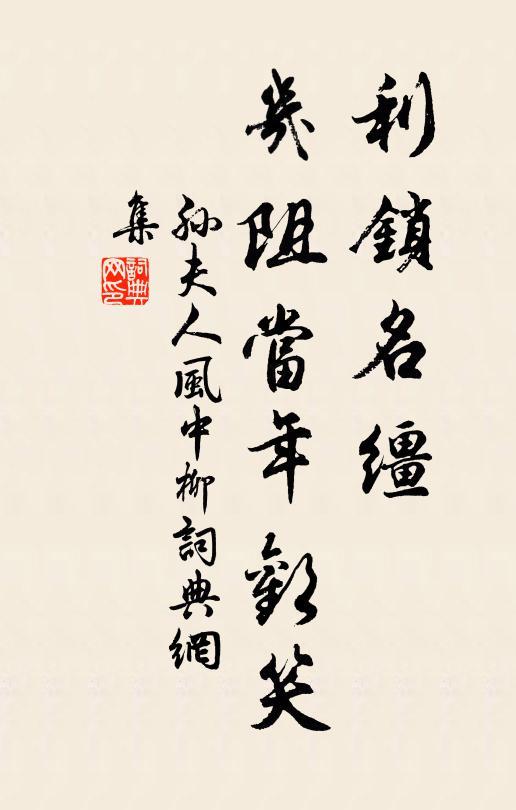 利鎖名繮
幾阻當年歡笑
孫夫人風中柳詞典網
集
詞典網印